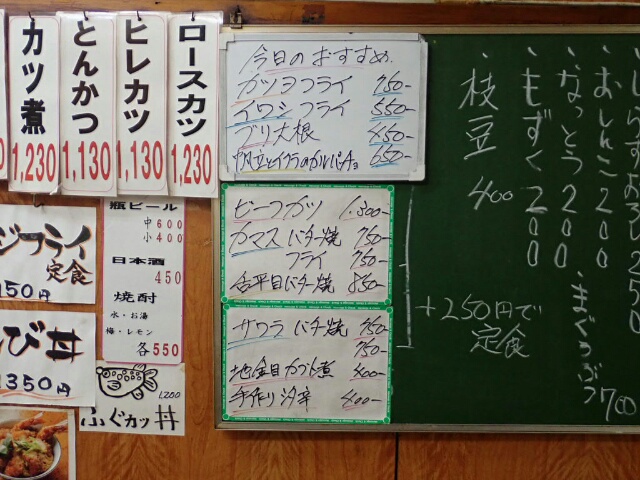 カツ煮
1,230
とんかつ
1,130
ヒレカツ
1,130
ロースカツ
1,230
今日のおすすめ
カツヲフライ 750-
イワシフライ 550-
ブリ大根 450-
650-
ビーフカツ 1.300-
カマスバター焼 750-
フライ 750-
舌平目バター焼 850-
サワラバター焼 750-
750-
地金目カブト煮 400-
手作り 400-
+250円で
定食
しらすおろし250
・おしんこ200
・なっとう200
・もずく200
・枝豆 400
・まぐろぶつ700
ジフライ
定食
瓶ビール
中600
小400
日本酒
450
焼酎
水・お湯
梅・レモン
各550
び丼
1350円
1200
ふぐカツ丼